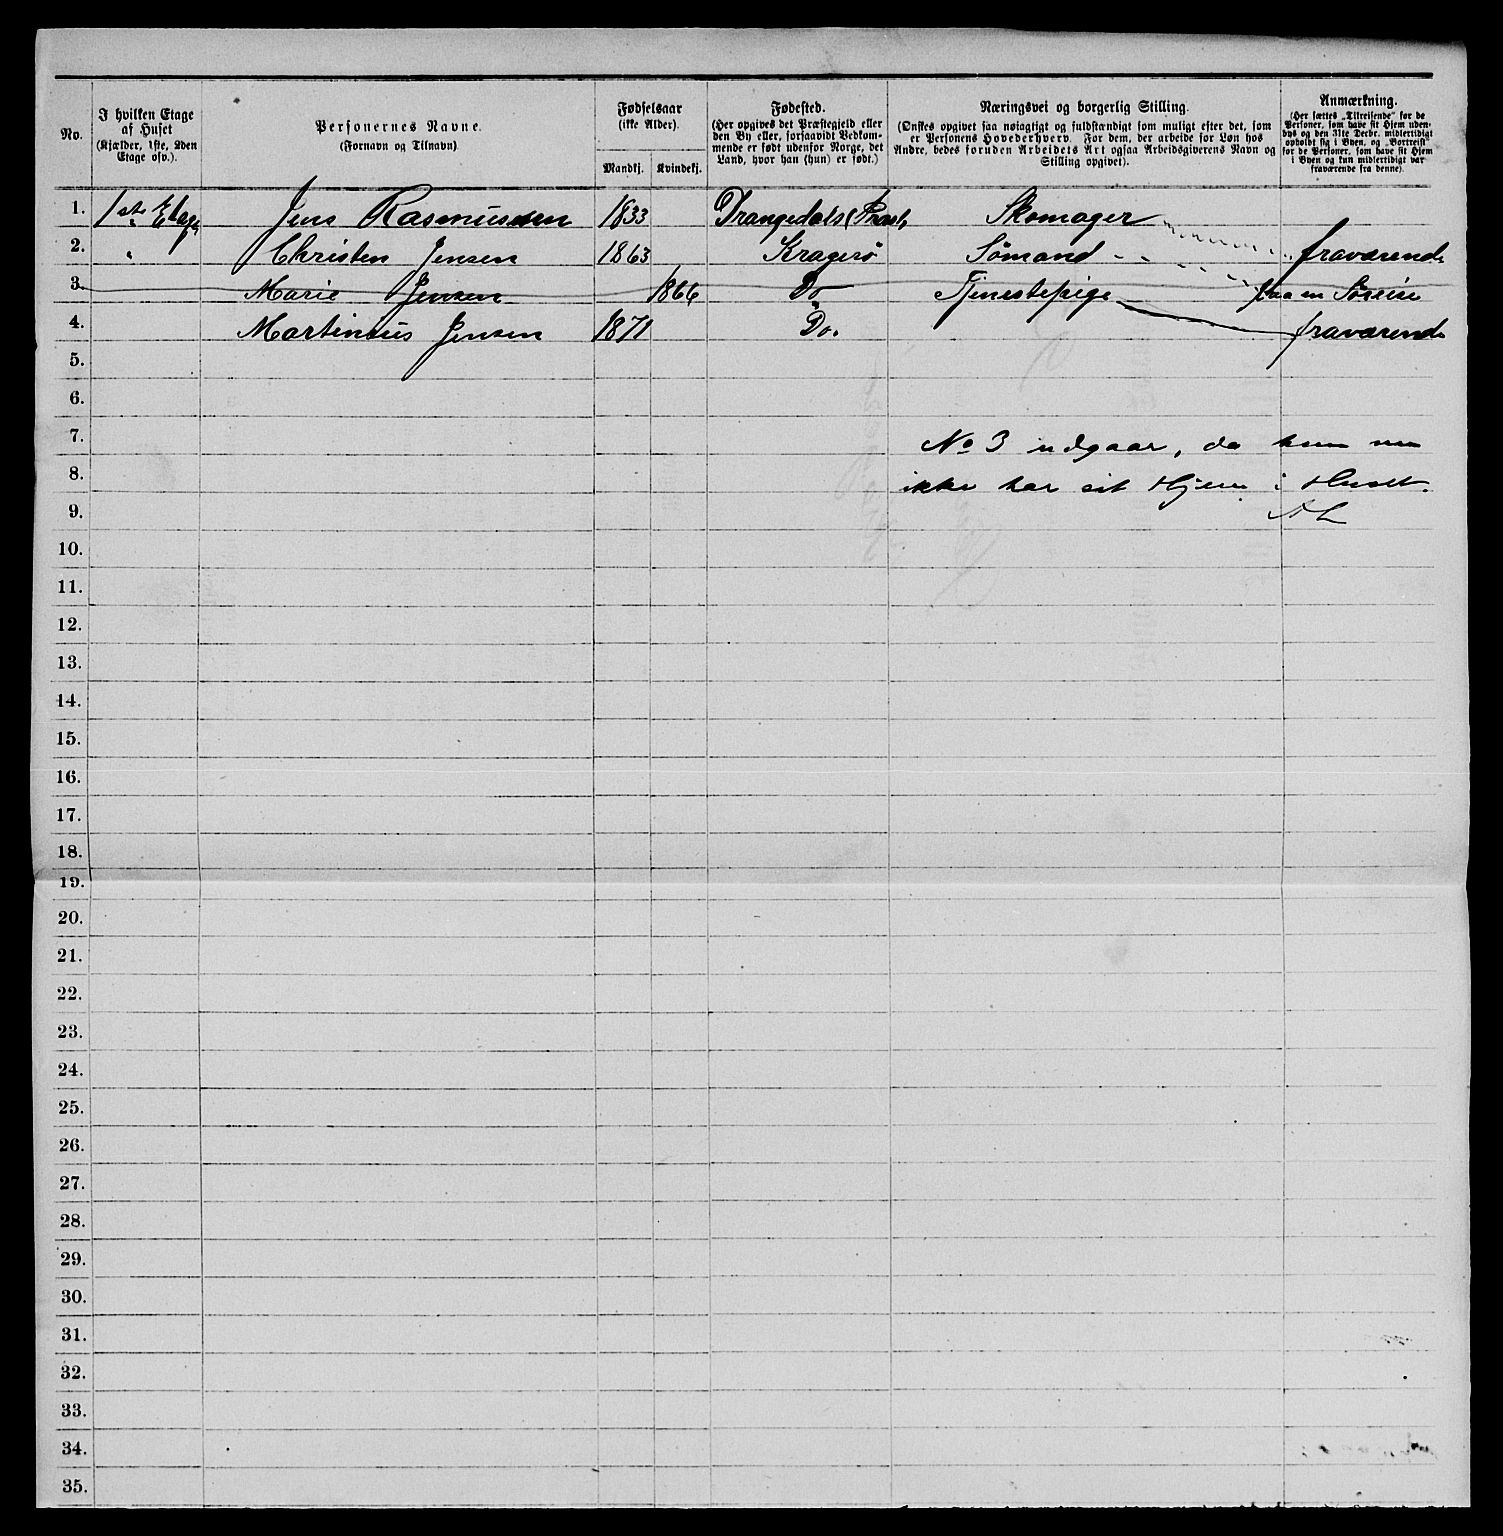 No.
I hvilken Etage
af Huset
(Kjælder, 1ste, 2den
Etage osv.).
Personernes Navne.
(Fornavn og Tilnavn)
Fødselsaar
(ikke Alder).
Mandkj. Kvindekj.
Fødested.
(Her opgives det Præstegjeld eller
den By eller, forsaavidt Vedkom-
mende er født udenfor Norge, det
Land, hvor han (hun) er født.)
Næringsvei og borgerlig Stilling.
(Ønskes opgivet saa nøiagtigt og fuldstændigt som muligt efter det, som
er Personens Hovederhverv. For dem, der arbeide for Løn hos
Andre, bedes foruden Arbeidets Art ogsaa Arbeidsgiverens Navn og
Stilling opgivet).
Anmærkning.
(Her sættes „Tilreisende“ for de
Personer, som have sit Hjem uden-
bys og den 31te Decbr. midlertidigt
opholdt sig i Byen, og „Bortreist“
for de Personer, som have sit Hjem
i Byen og kun midlertidigt var
fraværende fra denne).
1. 1ste Etage Jens Rasmussen 1833 Drangedals Præst. Skomager
2. " Christen Jensen 1863 Kragerø Sømand fraværende
3. Marie Jensen 1866 Do Tjenestepige paa en Søreise
4. Martinius Jensen 1871 Do. fraværende
5.
6.
7. No 3 udgaar, da hun nu
8. ikke har sit Hjem i Huset.
9.
10.
11.
12.
13.
14.
15.
16.
17.
18.
19.
20.
21.
22.
23.
24.
25.
26.
27.
28.
29.
30.
31.
32.
33.
34.
35.